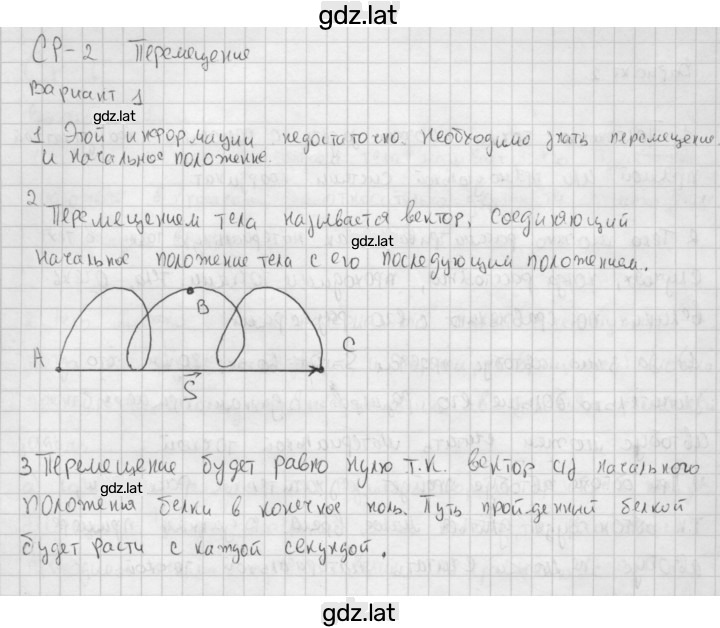 gdz.lat
СР-2 Перемещение
Вариант 1
gdz.lat
1 Этой информации недостаточно. Необходимо знать перемещение
и начальное положение.
2
Перемещением тела называется вектор, соединяющий
gdz.lat
начальное положение тела с его последующим положением.
B
A
C
S
3 Перемещение будет равно нулю т.к. вектор из начального
gdz.lat
положения белки в конечное ноль. Путь пройденный белкой
будет расти с каждой секундой.
gdz.lat